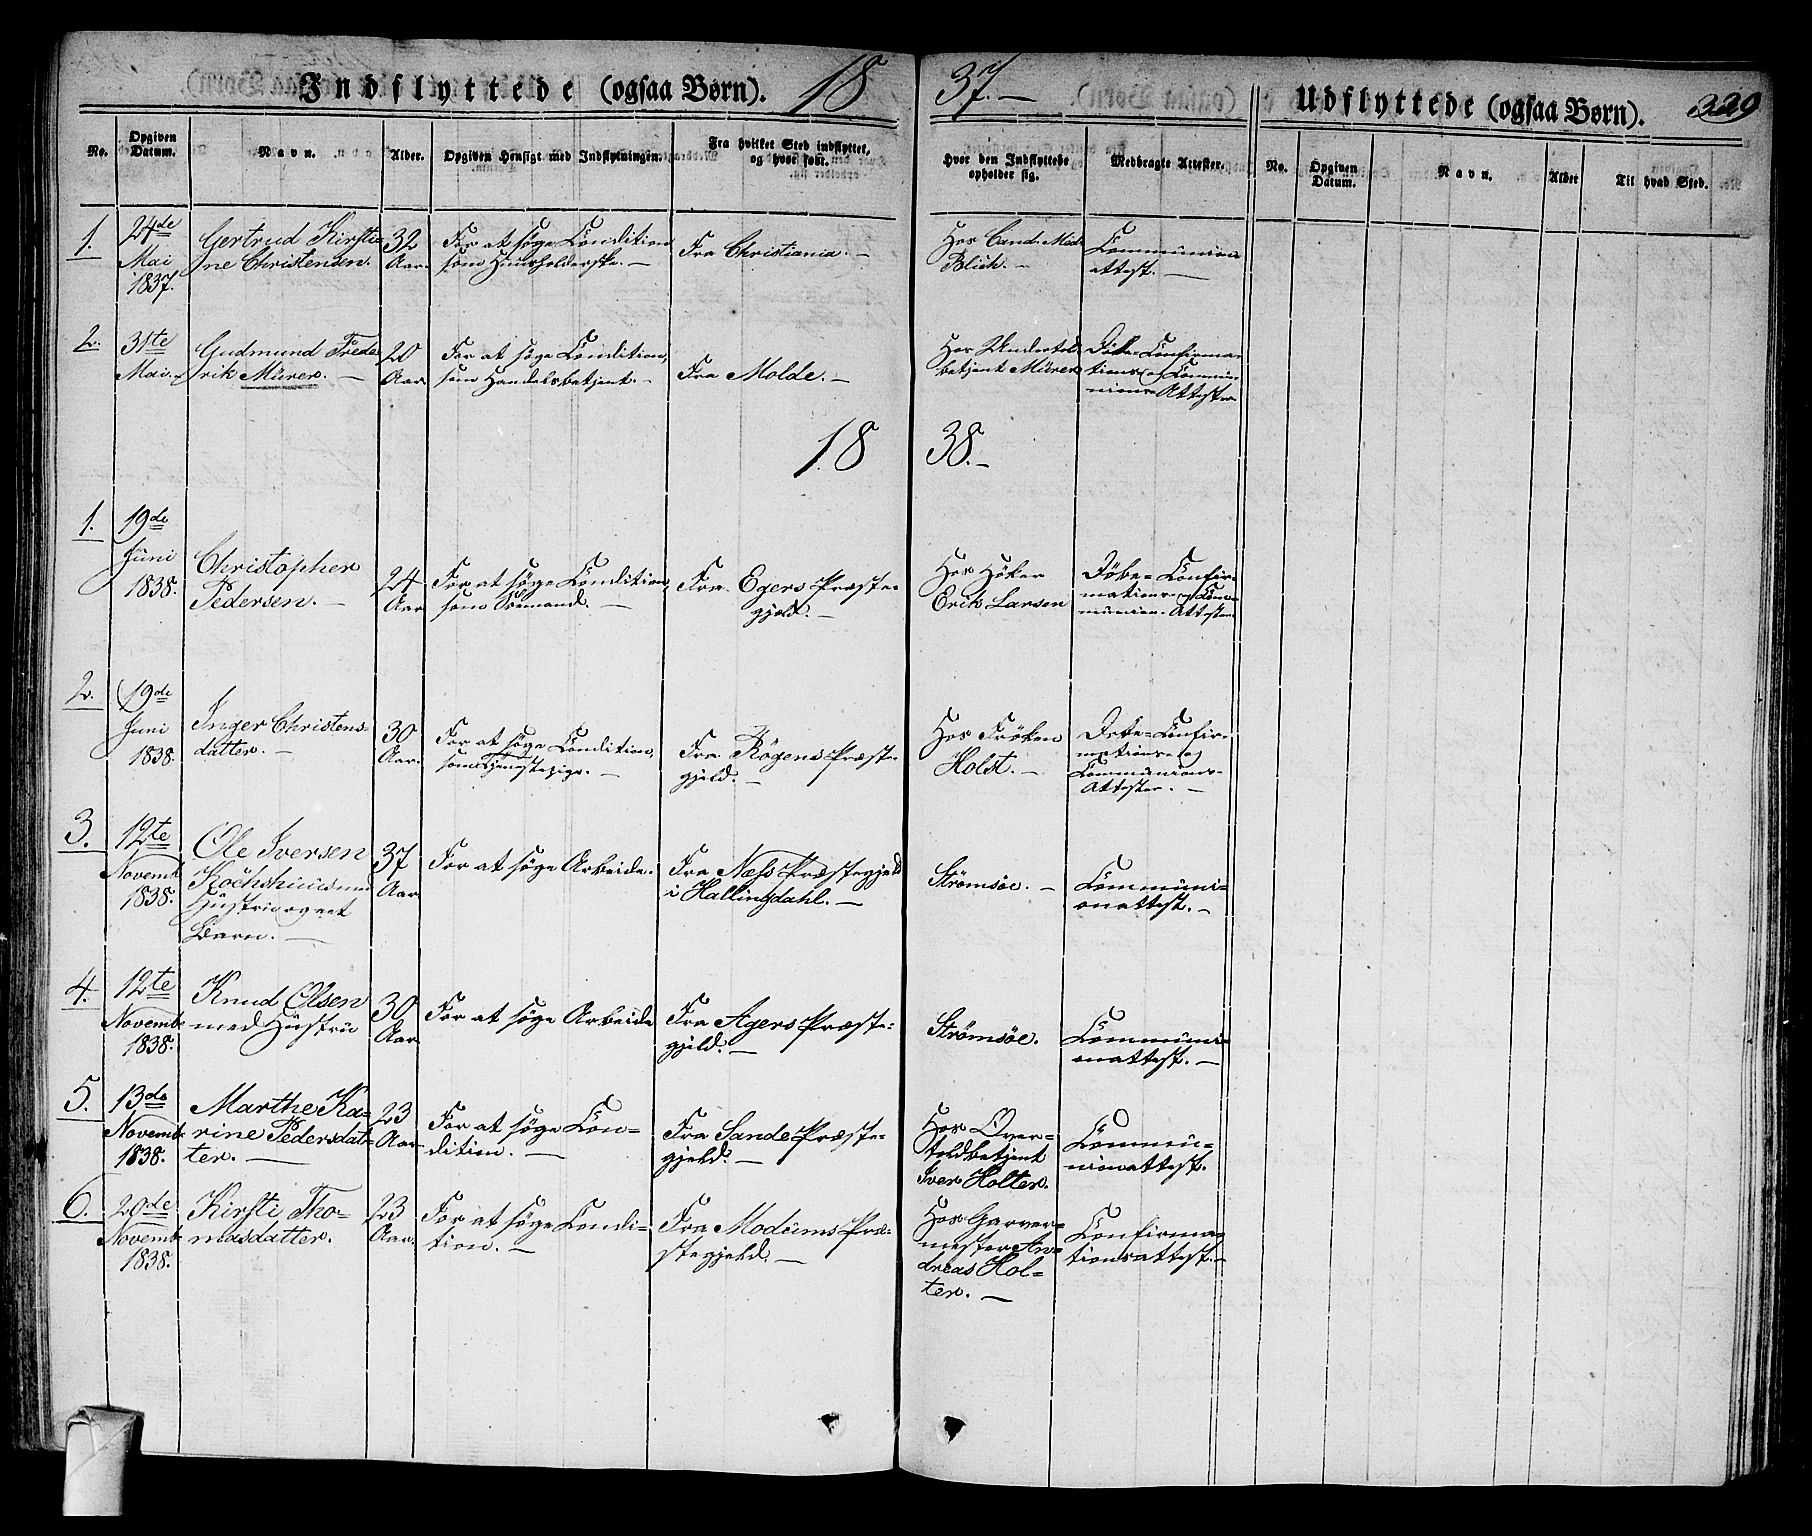 Indflyttede (ogsaa Børn). 18 37.— Udflyttede (ogsaa Børn). 329
No. Opgiven Datum. Navn. Alder. Opgiven Hensigt med Indflytningen. Fra hvilket Sted indflyttet, og hvor født. Hvor den Indflyttede opholder sig. Medbragte Attester. No. Opgiven Datum. Navn. Alder Til hvad Sted.
1. 24de Mai 1837. Gertrud Kirstine Christensen. 32 Aar. For at søge Condition som Huusholderske.— Fra Christiania.— Hos Cand. Blich.— Communions attest.—
2. 31te Mai.— Gudmund Frederik Mürer.— 20 Aar For at søge Condition, som Handelsbetjent.— Fra Molde.— Hos Undertoldbetjent Mürer Döbe- Confirmations- og Communions- Attester
18 38.—
1. 19de Juni 1838. Christopher Pedersen.— 24 Aar For at søge Condition, som Sømand.— Fra Egers Præstegjeld.— Hos Höker Erik Larsen Döbe- Confirmations- og Communions- Attester
2. 19de Juni 1838. Inger Christensdatter.— 30 Aar. For at søge Condition, som Tjenestepige.— Fra Røgens Præstegjeld.— Hos Frøken Holst.— Döbe- Confirmations- og Communions- Attester.—
3. 12te Novemb. 1838. Ole Iversen Hustrue og eet Barn.— 37 Aar For at søge Arbeide. Fra Næss Præstegjeld i Hallingdahl.— Strømsøe.— Communionattest.—
4. 12te Novemb. 1838. Knud Olsen med Hustrü 30 Aar. For at søge Arbeide Fra Agers Præstegjeld.— Strømsöe. Communionattest.—
5. 13de Novemb. 1838. Marthe Karine Pedersdatter.— 23 Aar. For at søge Condition.— Fra Sande Præstegjeld.— Hos Overtoldbetjent Iver Holter. Communionattest.
6. 20de Novemb. 1838. Kirsti Thomasdatter. 23 Aar. For at søge Condition.— Fra Modums Præstegjeld.— Hos Garvermester Andreas Holter.— Confirmationsattest.—